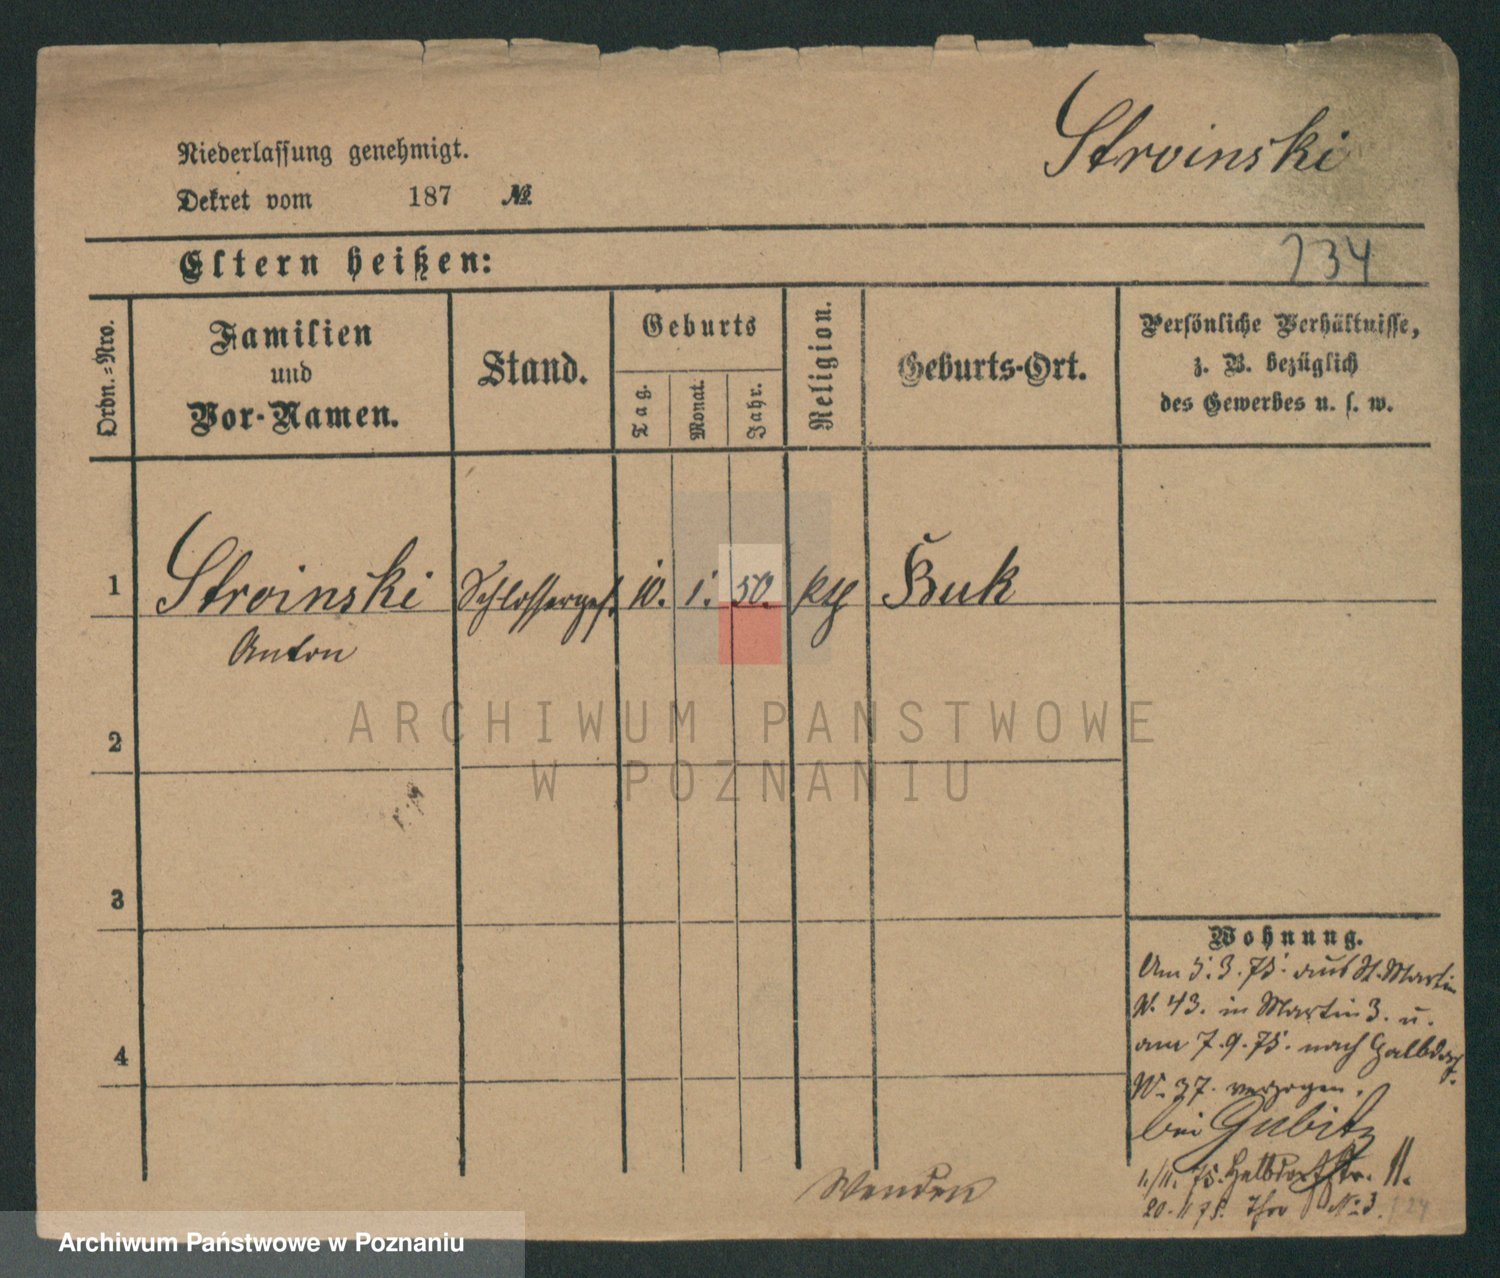 Stroinski
Niederlassung genehmigt.
Dekret vom 187 №
Eltern heißen:
234
Ordn.=Nro.
Familien
und
Vor-Namen.
Stand.
Geburts
Tag.
Monat.
Jahr.
Religion.
Geburts-Ort.
Persönliche Verhältnisse,
z. B. bezüglich
des Gewerbes u. s. w.
1 Stroinski Schlosserges. 10. 1. 50. kth Buk
Anton
2
ARCHIWUM PAŃSTWOWE
W POZNANIU
3
Wohnung.
Am 5.3.75. aus St. Martin
N. 43. in Martin 3. u.
4
am 7.9.75. nach Halbdorf
N. 37. verzogen.
bei Gubitz
1./11. 75. Halbdorfstr. 11.
Wenden
20. 11 75. No 3.
Archiwum Państwowe w Poznaniu